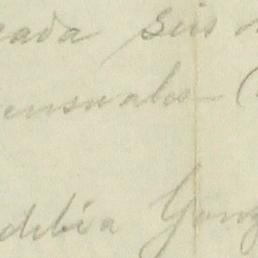 cada seis
ensuales (
debia Gonz